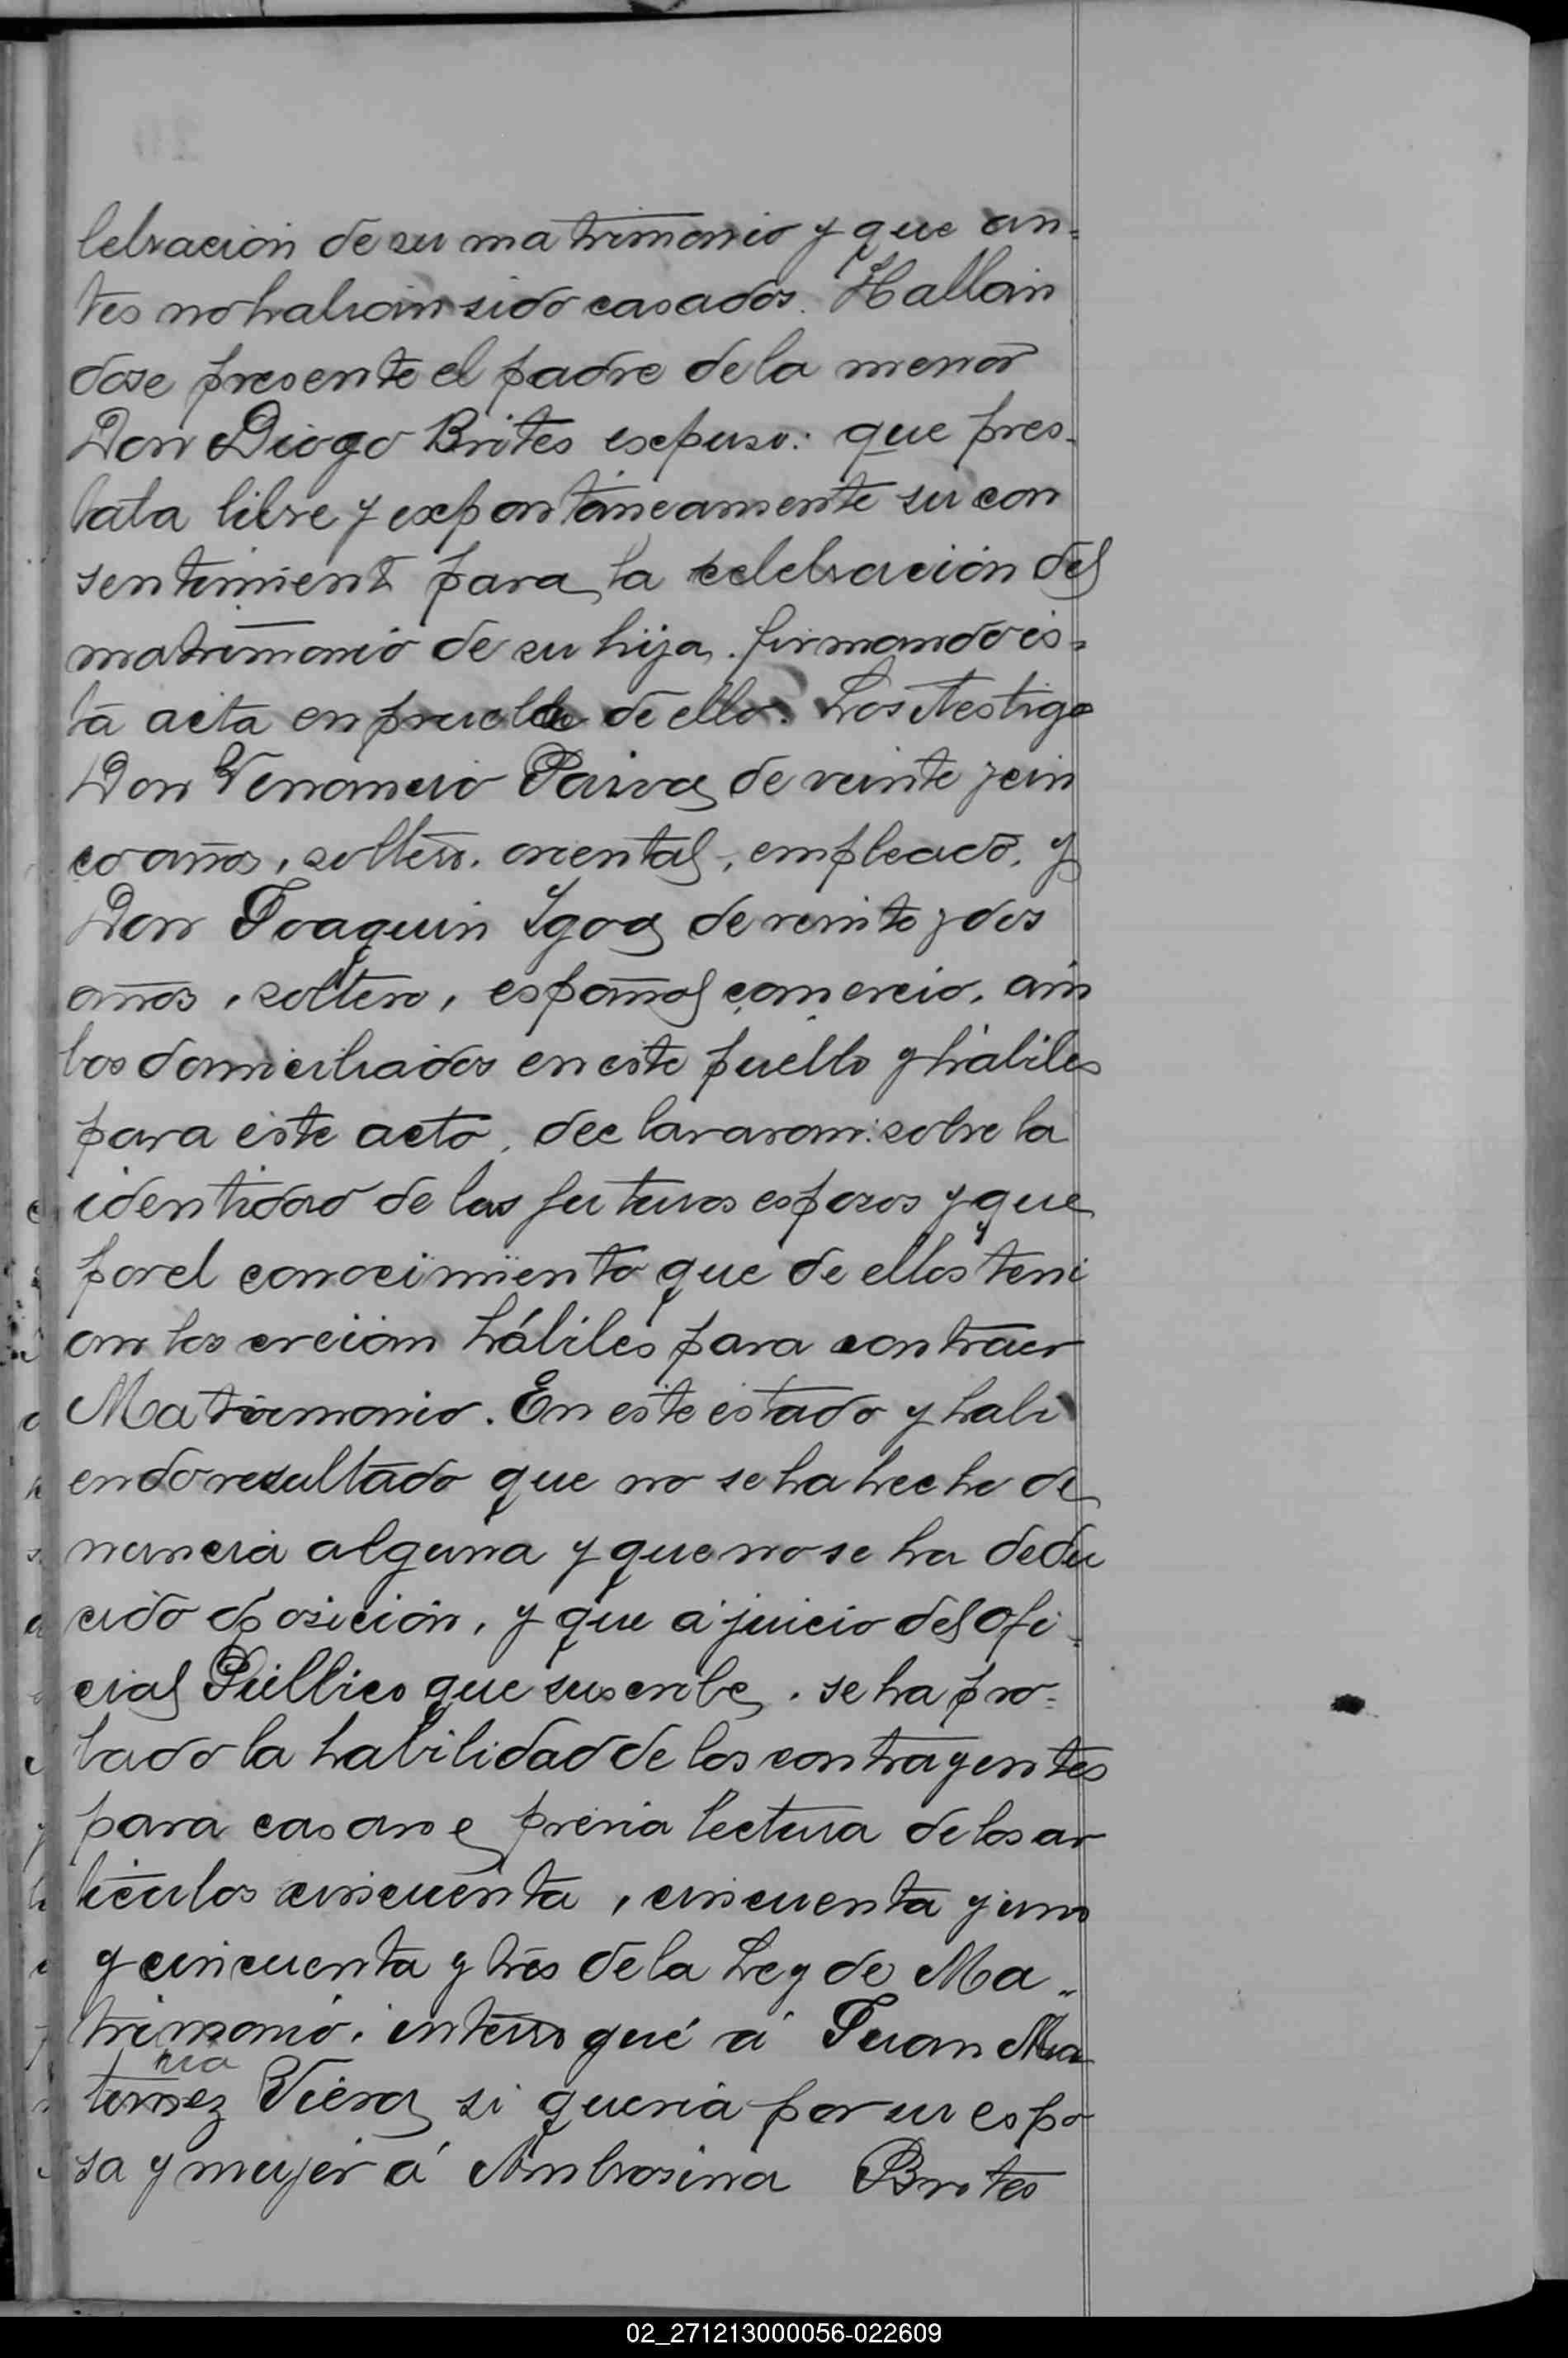 lebración de su matrimonio y que an-
tes no habian sido casados. Hallan
dose presente el padre de la menor
Don Diogo Brites expuso: que pres-
taba libre y expontáneamente su con
sentimient para la celebración del
matrimonio de su hija. firmando es-
ta acta en prueba de ello. Los testigo
Don Venancio Paiva de veinte y cin
co años, soltero, oriental, empleado, y
Don Joaquin Ygoa de veinte y dos
años, soltero, español comercio, am
bos domiciliados en este pueblo y hábiles
para este acto, declararon: sobre la
identidad de los futuros esposos y que
por el conocimiento que de ellos teni
an los creian hábiles para contraer
Matrimonio. En este estado y habi
endo resultado que no se ha hecho de
nuncia alguna y que no se ha dedu
cido oposición, y que á juicio del Ofi-
cial Público que suscribe, se ha pro-
bado la habilidad de los contrayentes
para casarse, prévia lectura de los ar
ticulos cincuenta, cincuenta y uno
y cincuenta y tres de la Ley de Ma-
trimonio. interrogué á Juan Ma
ria
Viera si queria por su espo
sa y mujer á Ambrosina Brites
02_271213000056-022609